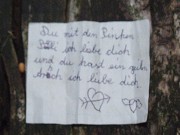 Du mit den Pinken
Pulli ich liebe dich
und du hast ein guten
ich liebe dich